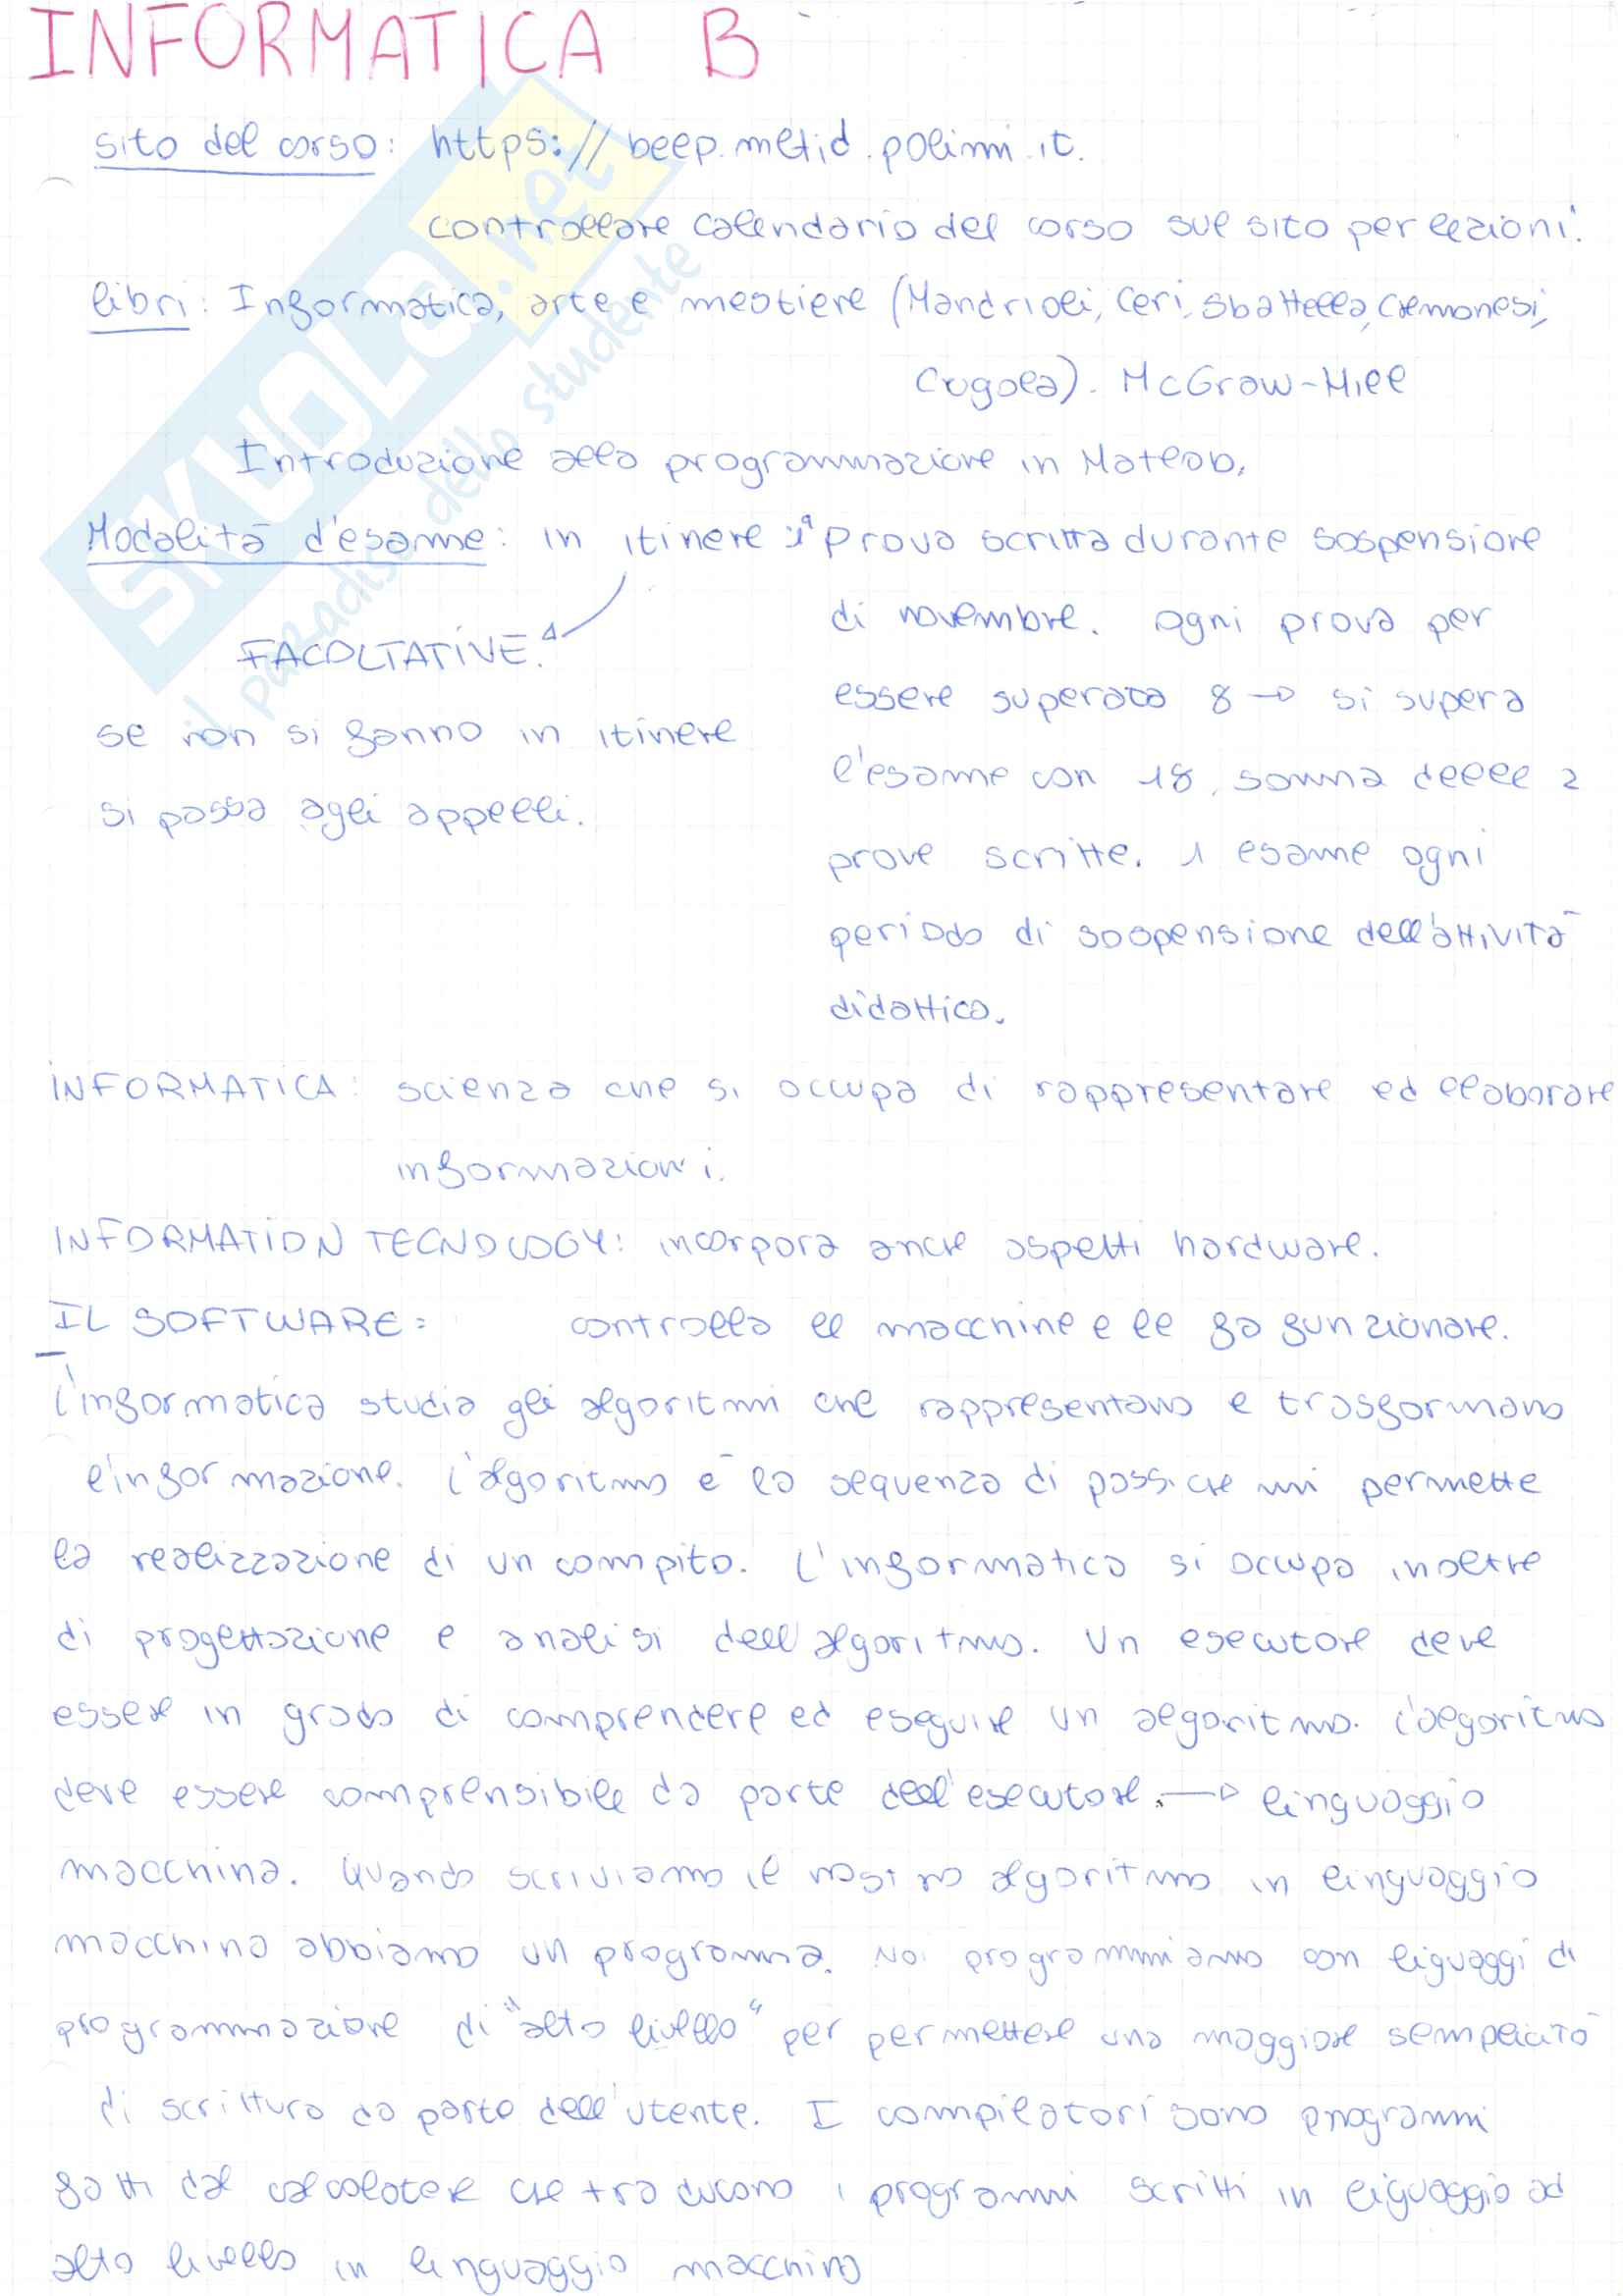 INFORMATICA B
sito del corso: https://beep.metid.polimi.it.
controllare calendario del corso sul sito per lezioni.
libri: Informatica, arte e mestiere (Mandrioli, Ceri, Sbattella, Cremonesi,
Cugola). McGraw-Hill
Introduzione alla programmazione in Matlab.
Modalità d'esame: in itinere 1ª prova scritta durante sospensione
di novembre. Ogni prova per
FACOLTATIVE.
essere superata 8 → si supera
se non si fanno in itinere
l'esame con 18, somma delle 2
si passa agli appelli.
prove scritte. 1 esame ogni
periodo di sospensione dell'attività
didattica.
INFORMATICA: scienza che si occupa di rappresentare ed elaborare
informazioni.
INFORMATION TECNOLOGY: incorpora anche aspetti hardware.
IL SOFTWARE: controlla le macchine e le fa funzionare.
L'informatica studia gli algoritmi che rappresentano e trasformano
l'informazione. L'algoritmo è la sequenza di passi che mi permette
la realizzazione di un compito. L'informatica si occupa inoltre
di progettazione e analisi dell'algoritmo. Un esecutore deve
essere in grado di comprendere ed eseguire un algoritmo. L'algoritmo
deve essere comprensibile da parte dell'esecutore. → linguaggio
macchina. Quando scriviamo il nostro algoritmo in linguaggio
macchina abbiamo un programma. Noi programmiamo con liguaggi di
programmazione di "alto livello" per permettere una maggiore semplicità
di scrittura da parte dell'utente. I compilatori sono programmi
fatti dal calcolatore che traducono i programmi scritti in liguaggio ad
alto livello in linguaggio macchina
SKUOLA.net
il paradiso dello studente